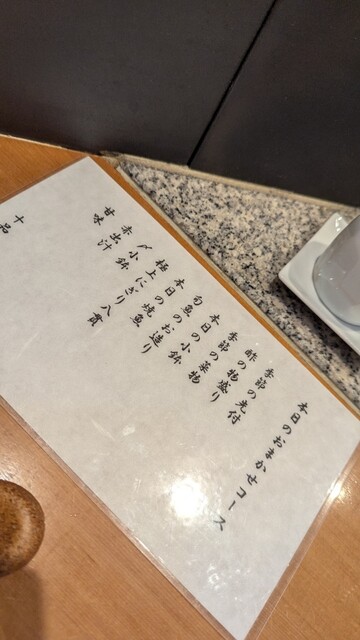 本日のおまかせコース
季節の先付
酢の物盛り
季節の菜物
本日の小鉢
旬魚のお造り
本日の焼魚
極上にぎり八貫
〆小鉢
赤出汁
甘味
十品